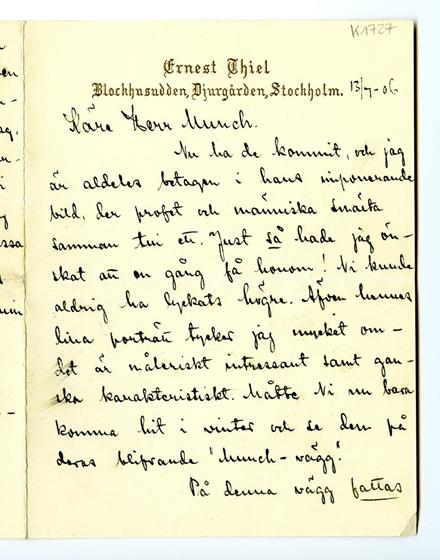 K1727
Ernest Thiel
Blockhusudden, Djurgården, Stockholm. 13/7-06
Käre Herr Munch.
Nu ha de kommit, och jag
är aldeles betagen i hans imponerande
bild, der profet och människa smälta
samman till ett. Just så hade jag ön-
skat att en gång få honom! Ni kunde
aldrig ha lyckats högre. Äfven hennes
lilla porträtt tycker jag mycket om –
det är måleriskt intressant samt gan-
ska karakteristiskt. Måtte Ni nu bara
komma hit i vinter och se dem på
deras blifvande 'Munch-vägg'!
På denna vägg fattas